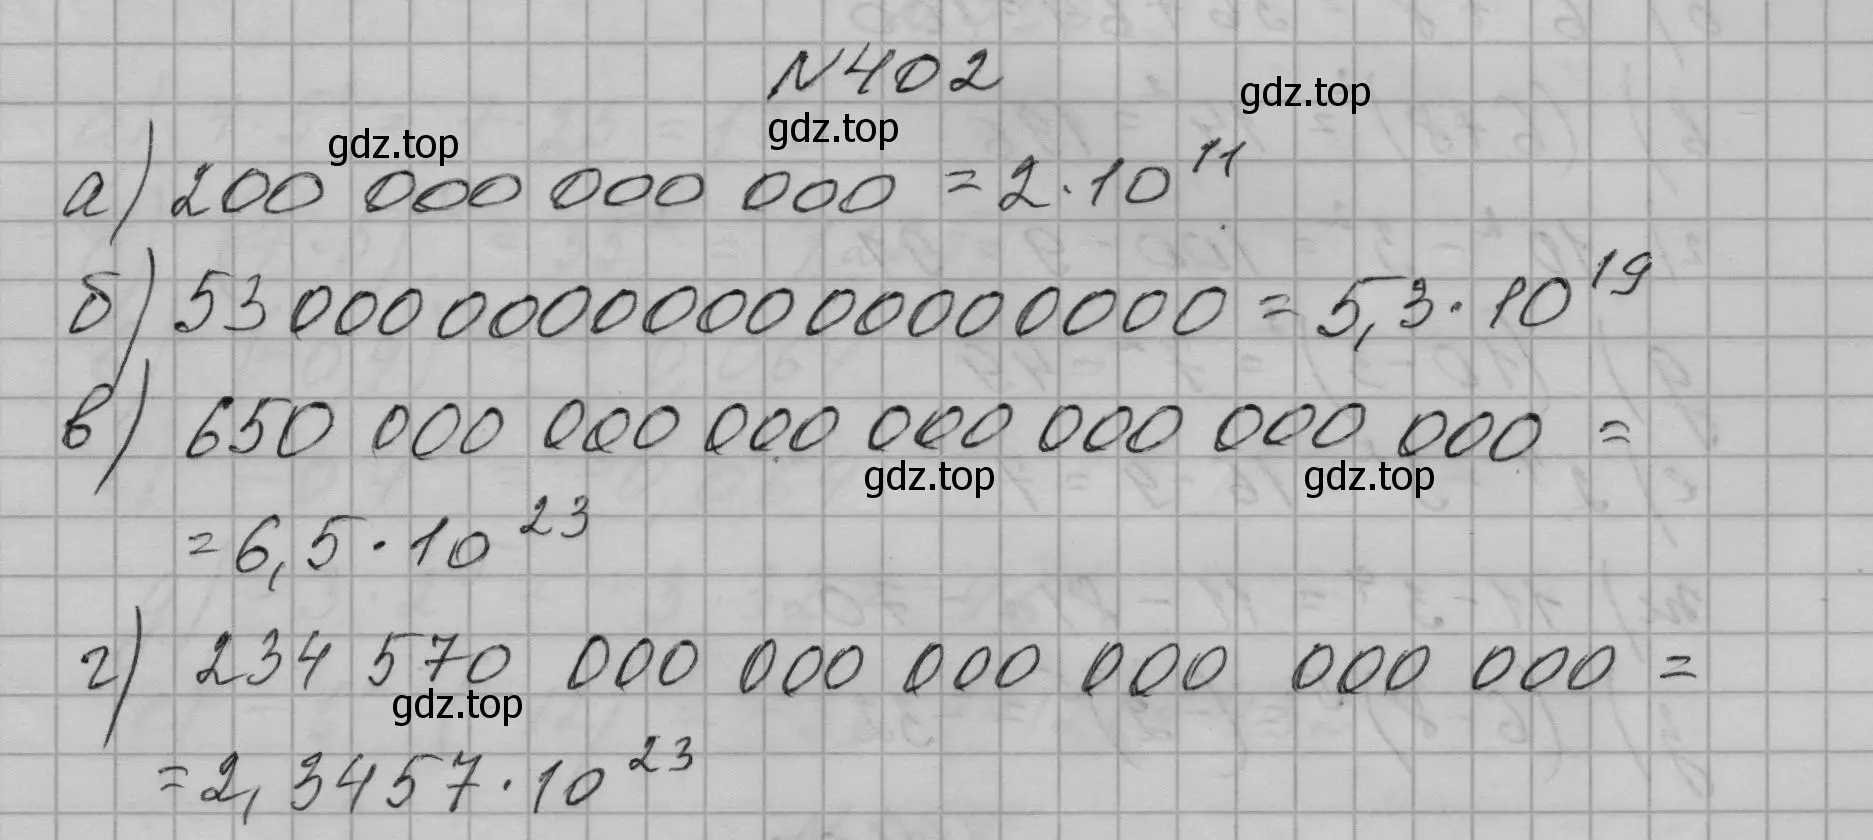 N402
gdz.top
gdz.top
gdz.top
а) 200 000 000 000 = 2·10¹¹
б) 53000000000000000000 = 5,3·10¹⁹
в) 650 000 000 000 000 000 000 000 =
gdz.top
gdz.top
= 6,5·10²³
г) 234 570 000 000 000 000 000 000 =
gdz.top
= 2,3457·10²³